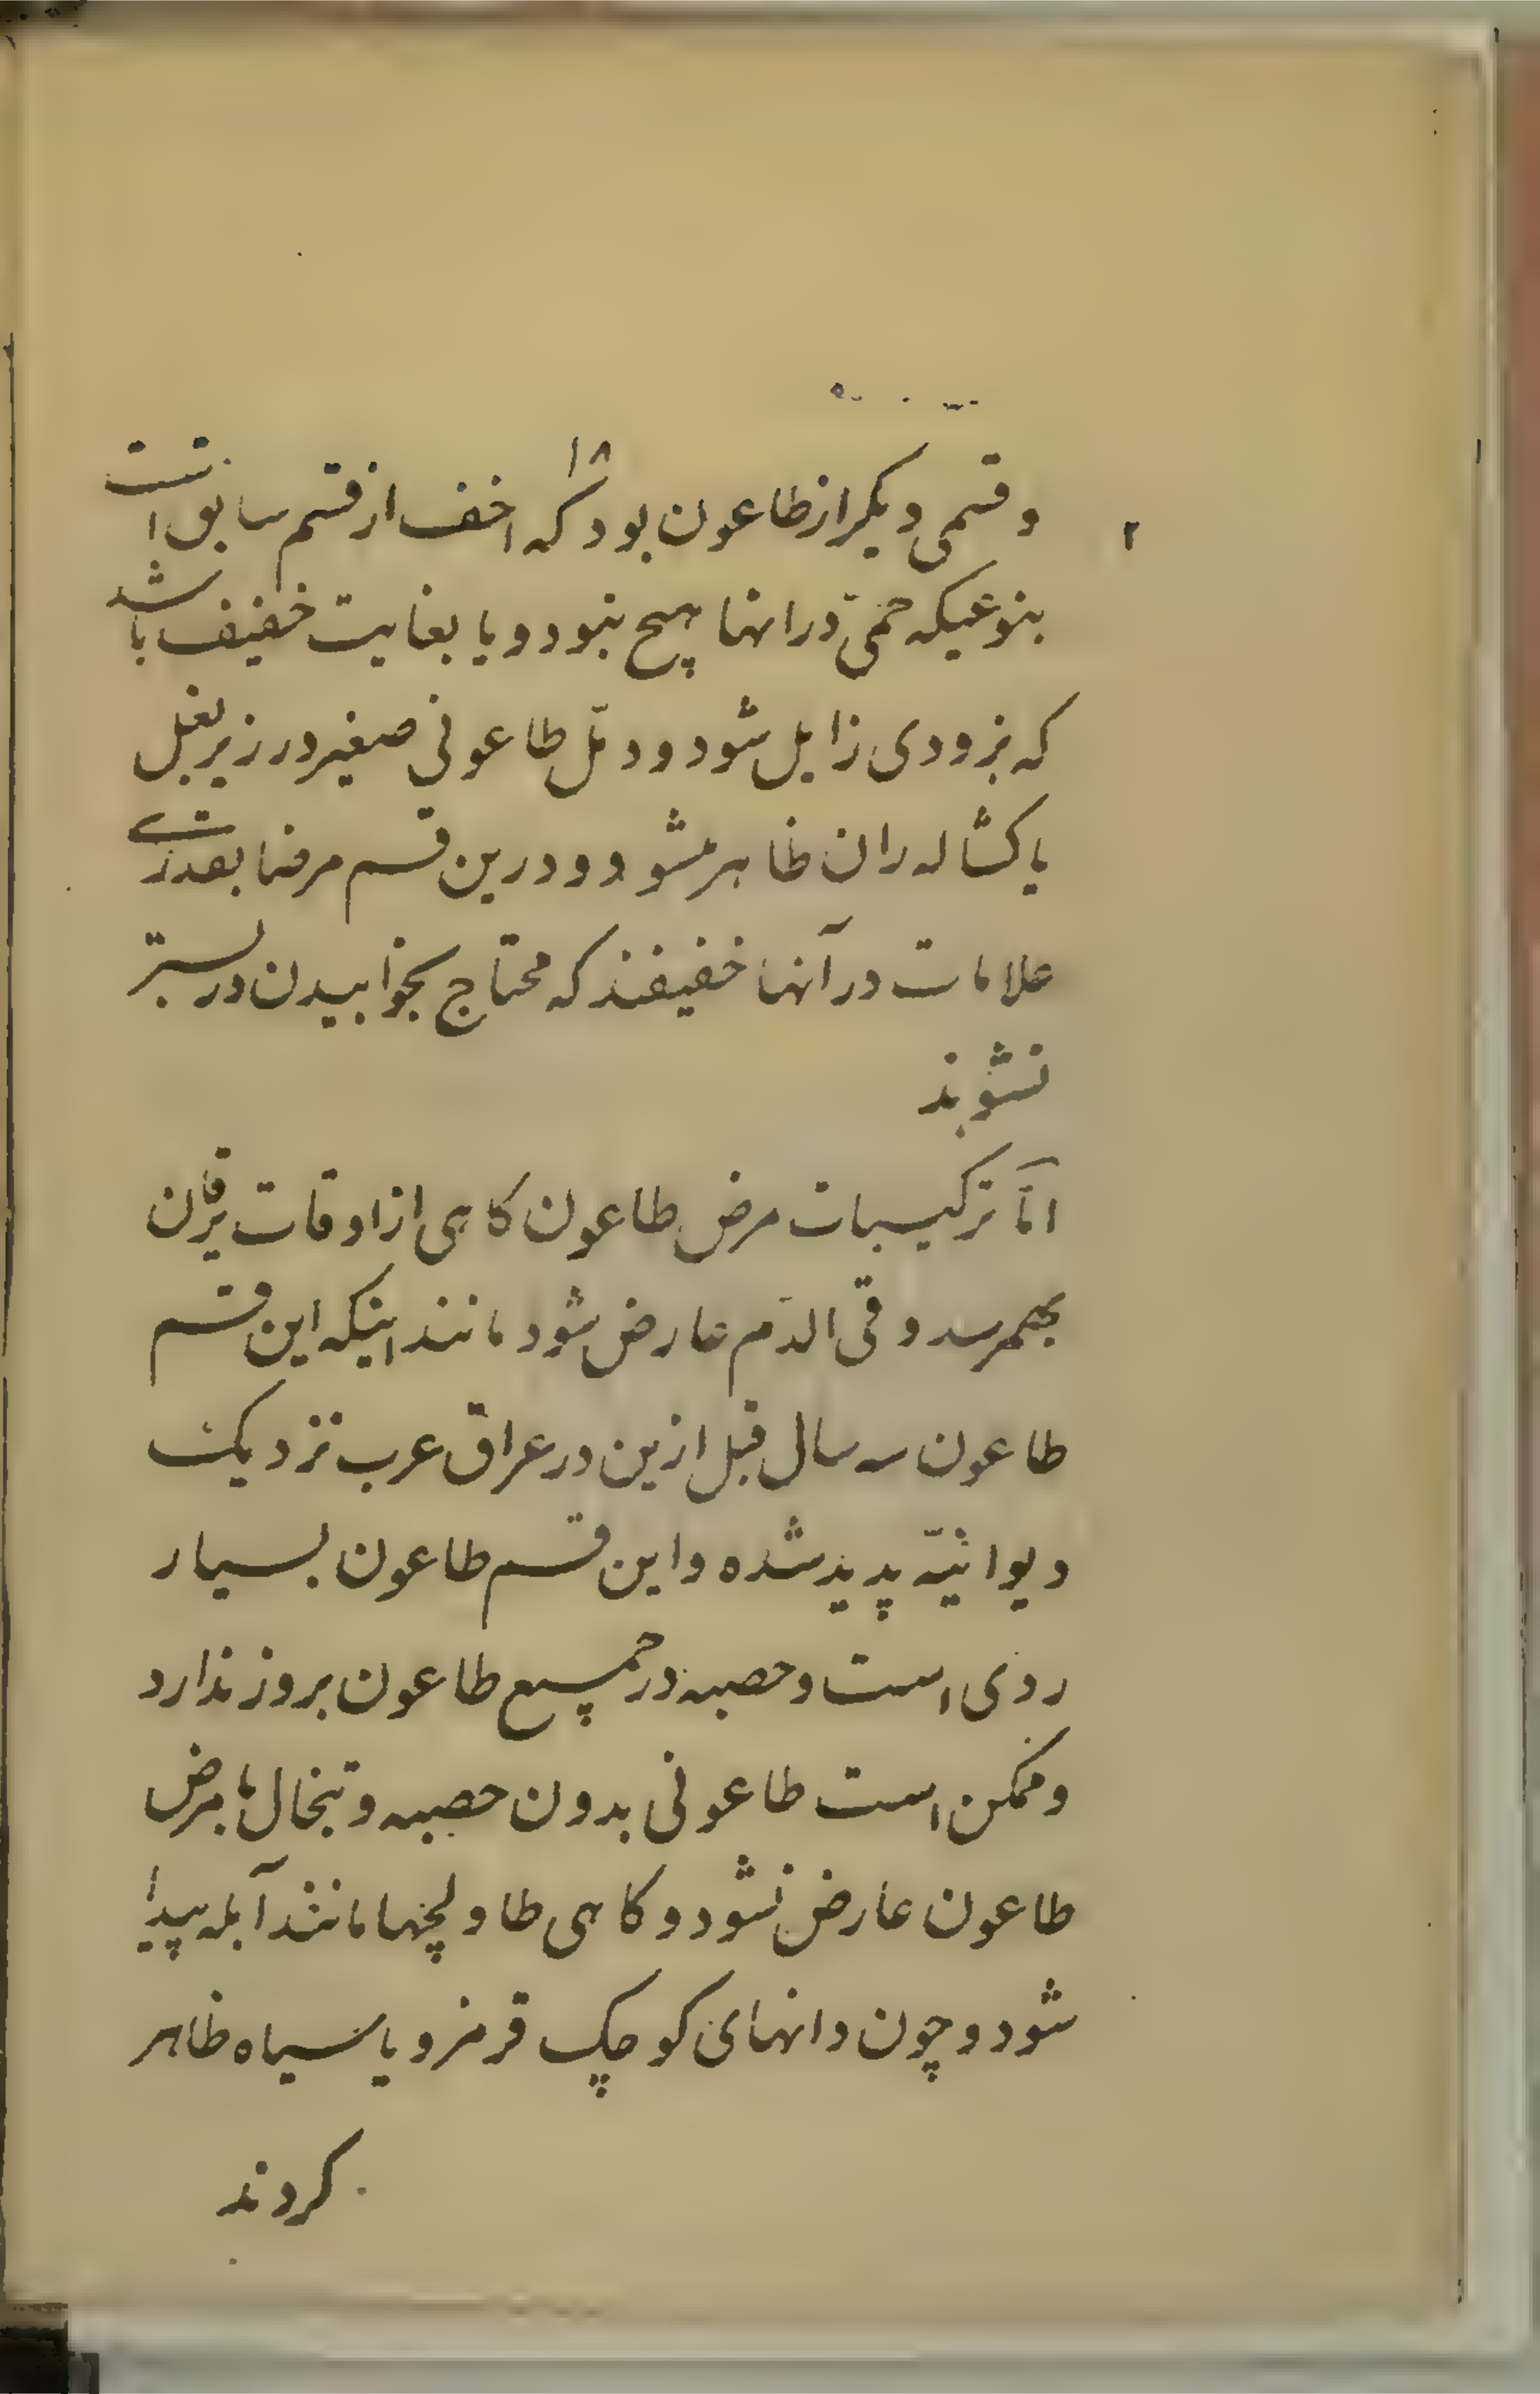 ۱۸
و قسمی دیکر از طاعون بود که اخف از قسم سابق است
بنوعیکه حمّی در انها هیچ نبود و یا بغایت خفیف باشد
که بزودی زایل شود و دمّل طاعونی صغیر در زیر بغل
یا کشاله ران ظاهر میشود و درین قسم مرضا بقدری
علامات در آنها خفیفند که محتاج بخوابیدن در بستر
نشوند
امّا ترکیبات مرض طاعون کاهی از اوقات یرقان
بهمرسد و قی الدّم عارض شود مانند اینکه این قسم
طاعون سه سال قبل ازین در عراق عرب نزدیک
دیوانیّه پدید شده و این قسم طاعون بسیار
ردی است و حصبه در جمیع طاعون بروز ندارد
و ممکن است طاعونی بدون حصبه و تبخال با مرض
طاعون عارض نشود و کاهی طاولچها مانند آبله پیدا
شود و چون دانهای کوچک قرمز و یا سیاه ظاهر
کردند